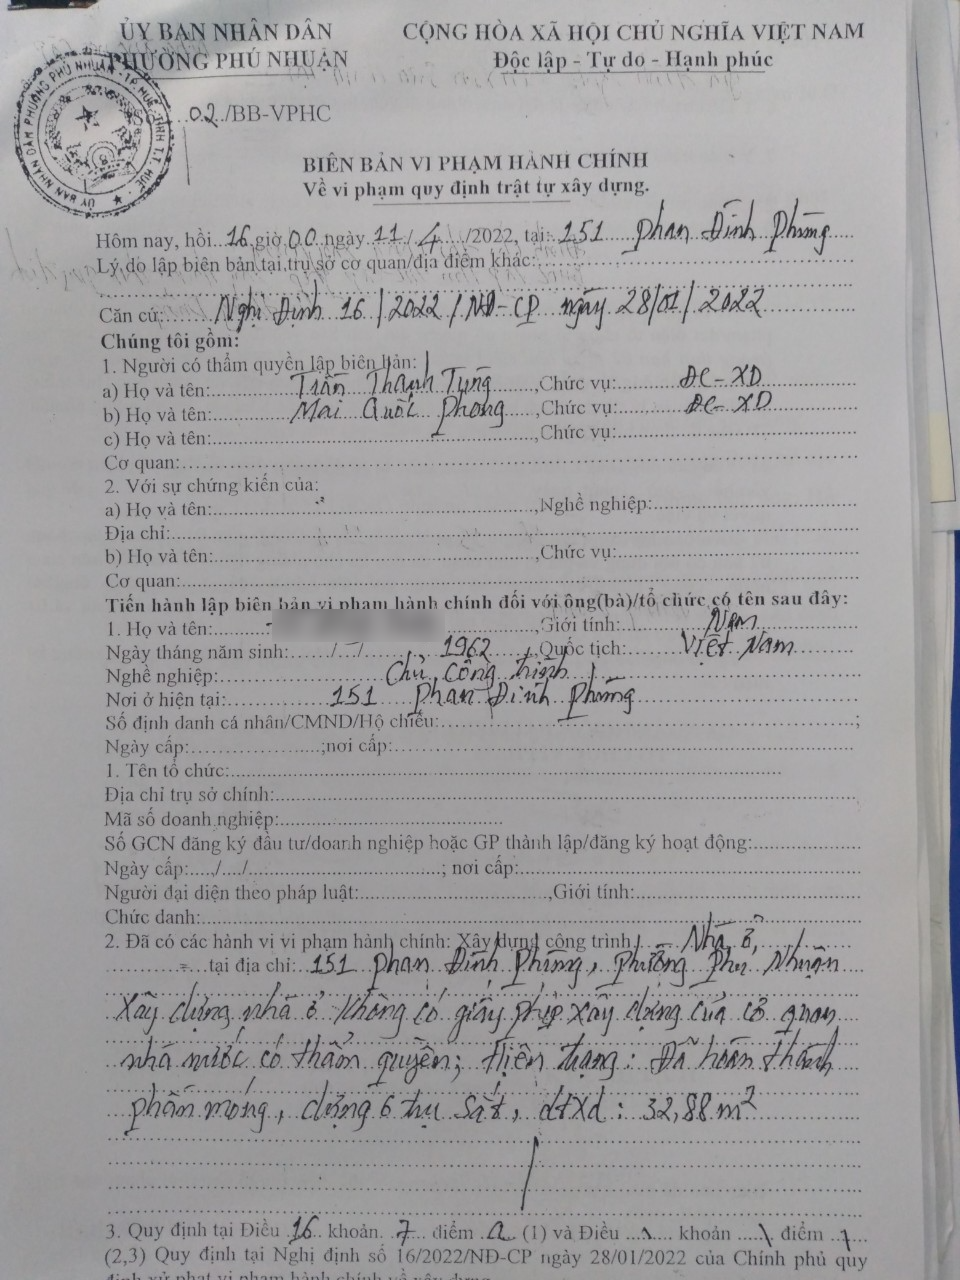 ỦY BAN NHÂN DÂN
PHƯỜNG PHÚ NHUẬN
CỘNG HÒA XÃ HỘI CHỦ NGHĨA VIỆT NAM
Độc lập - Tự do - Hạnh phúc
ỦY BAN NHÂN DÂN PHƯỜNG PHÚ NHUẬN - TP. HUẾ - TỈNH T.T. HUẾ
02./BB-VPHC
BIÊN BẢN VI PHẠM HÀNH CHÍNH
Về vi phạm quy định trật tự xây dựng.
Hôm nay, hồi 16 giờ 00 ngày 11/4/2022, tại: 151 Phan Đình Phùng
Lý do lập biên bản tại trụ sở cơ quan/địa điểm khác:
Căn cứ: Nghị Định 16/2022/NĐ-CP ngày 28/01/2022
Chúng tôi gồm:
1. Người có thẩm quyền lập biên bản:
a) Họ và tên: Trần Thanh Tùng, Chức vụ: ĐC-XD
b) Họ và tên: Mai Quốc Phong, Chức vụ: ĐC-XD
c) Họ và tên:, Chức vụ:
Cơ quan:
2. Với sự chứng kiến của:
a) Họ và tên:, Nghề nghiệp:
Địa chỉ:
b) Họ và tên:, Chức vụ:
Cơ quan:
Tiến hành lập biên bản vi phạm hành chính đối với ông(bà)/tổ chức có tên sau đây:
1. Họ và tên:, Giới tính: Nam
Ngày tháng năm sinh: /-/ 1962, Quốc tịch: Việt Nam
Nghề nghiệp: Chủ công trình
Nơi ở hiện tại: 151 Phan Đình Phùng
Số định danh cá nhân/CMND/Hộ chiếu:;
Ngày cấp:;nơi cấp:
1. Tên tổ chức:
Địa chỉ trụ sở chính:
Mã số doanh nghiệp:
Số GCN đăng ký đầu tư/doanh nghiệp hoặc GP thành lập/đăng ký hoạt động:
Ngày cấp:..../..../....; nơi cấp:
Người đại diện theo pháp luật:, Giới tính:
Chức danh:
2. Đã có các hành vi vi phạm hành chính: Xây dựng công trình Nhà ở,
tại địa chỉ: 151 Phan Đình Phùng, Phường Phú Nhuận
Xây dựng nhà ở không có giấy phép xây dựng của cơ quan
nhà nước có thẩm quyền; Hiện trạng: Đã hoàn thành
phần móng, dựng 6 trụ sắt, dtxd: 32,88 m²
3. Quy định tại Điều 16 khoản 7 điểm a (1) và Điều \ khoản \ điểm \
(2,3) Quy định tại Nghị định số 16/2022/NĐ-CP ngày 28/01/2022 của Chính phủ quy
định xử phạt vi phạm hành chính về xây dựng